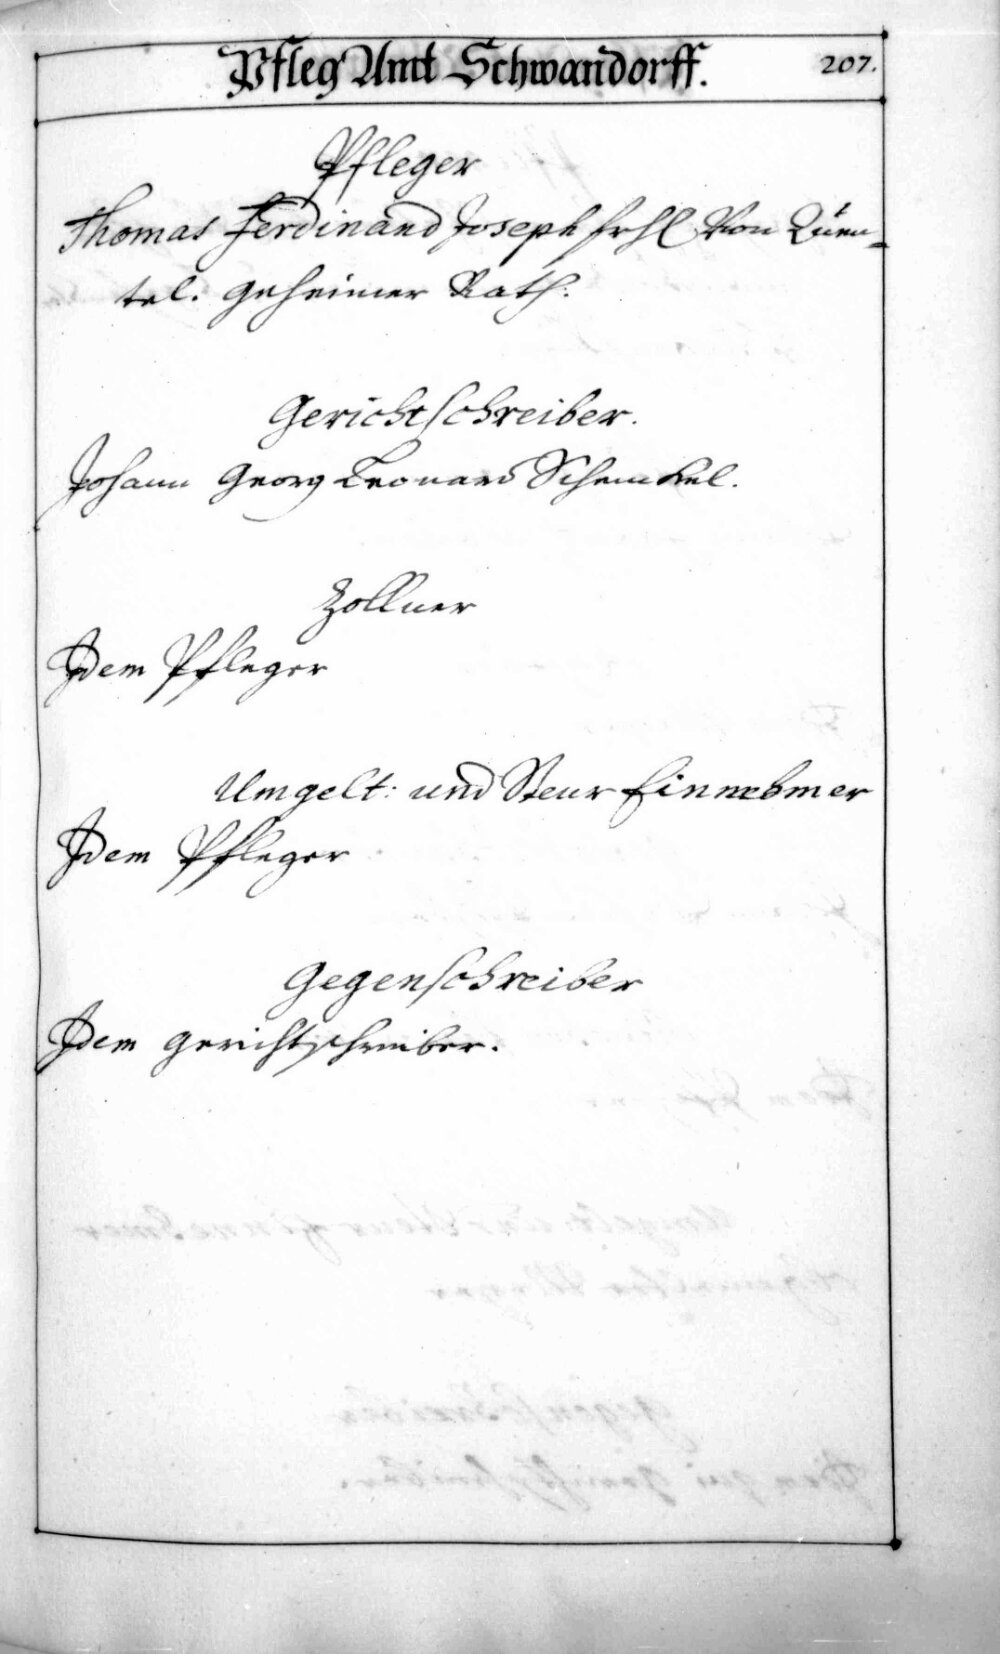 Pfleg Amt Schwandorff.
207.
Pfleger
Thomas Ferdinand Joseph frhl von Quen-
tel. geheimer Rath.
Gerichtschreiber.
Johann Georg Leonard Schenckel.
Zollner
Idem Pfleger
Umgelt: und Steur Einnehmer
Idem Pfleger
Gegenschreiber
Idem gerichtschreiber.